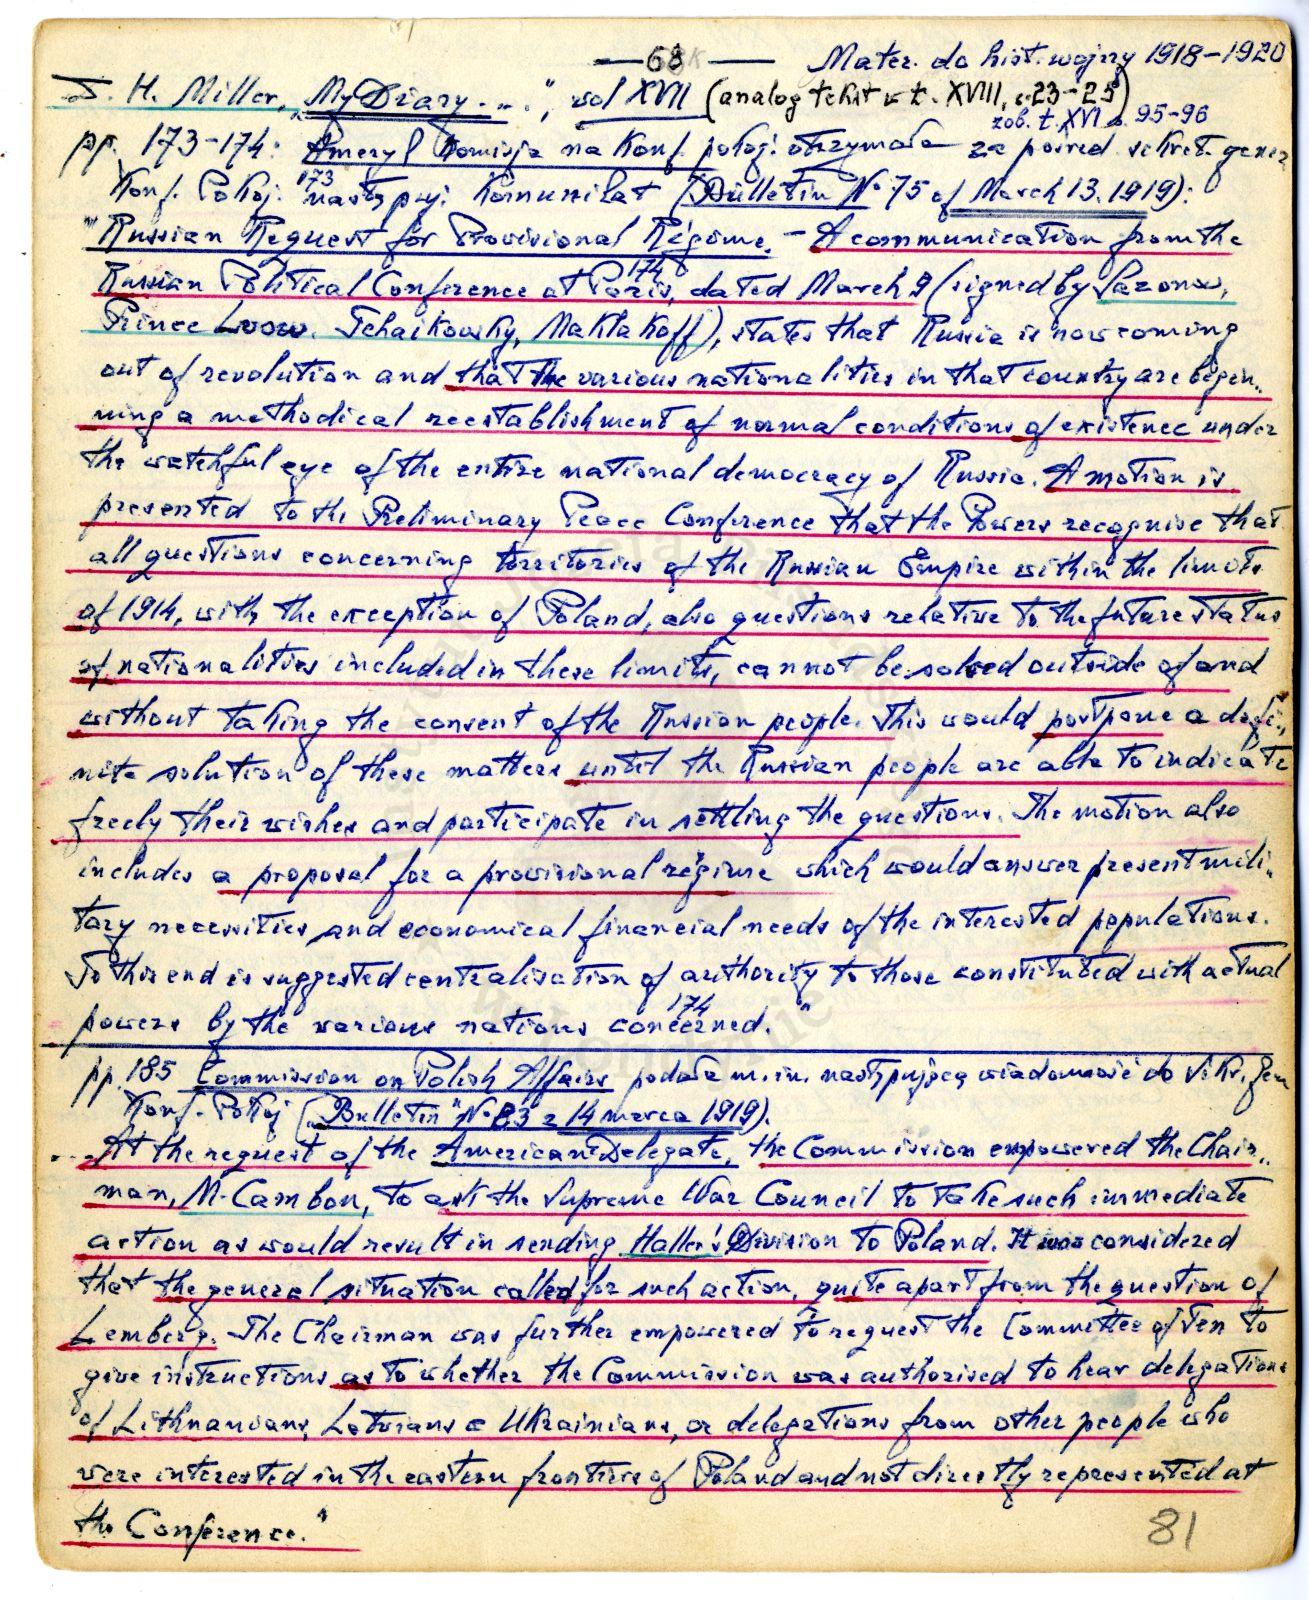 — 68 — Mater. do hist. wojny 1918-1920
J. H. Miller, „My Diary. ..", vol XVII (analog tekst w t. XVIII, s. 23-25)
zob. t. XVI s. 95-96
pp. 173-174: Ameryk Komisja na Konf. pokoj. otrzymała za pośred. sekret. gener
Konf. Pokoj. 173 następuj. Komunikat (Bulletin No 75 of March 13. 1919):
"Russian Request for Provisional Régime. - A communication from the
Russian Political Conference at Paris, 174 dated March 9 (signed by Sazonow,
Prince Lvow. Tchaikowsky, Maklakoff), states that Russia is now coming
out of revolution and that the various nationalities in that country are begin-
ning a methodical reestablishment of normal conditions of existence under
the watchful eye of the entire national democracy of Russia. A motion is
presented to the Preliminary Peace Conference that the Powers recognise that
all questions concerning territories of the Russian Empire within the limits
of 1914, with the exception of Poland, also questions relative to the future status
of nationalities included in these limits, cannot be solved outside of and
without taking the consent of the Russian people. This would postpone a defi-
nite solution of these matters until the Russian people are able to indicate
freely their wishes and participate in settling the questions. The motion also
includes a proposal for a provisional régime which would answer present mili-
tary necessities and economical financial needs of the interested populations.
To this end is suggested centralisation of authority to those constituted with actual
powers by the various nations concerned." 174
pp. 185 Commission on Polish Affairs podała m. in. następującą wiadomość do Sekr. Gen
Konf. Pokoj („Bulletin" No 83 z 14 marca 1919).
... At the request of the American Delegate, the Commission empowered the Chair-
man, M. Cambon, to ask the Supreme War Council to take such immediate
action as would result in sending Haller's Division to Poland. It was considered
that the general situation called for such action, quite apart from the question of
Lemberg. The Chairman was further empowered to request the Committee of Ten to
give instructions as to whether the Commission was authorised to hear delegations
of Lithuanians, Latvians a Ukrainians, or delegations from other people who
were interested in the eastern frontiers of Poland and not directly represented at
the Conference."
81